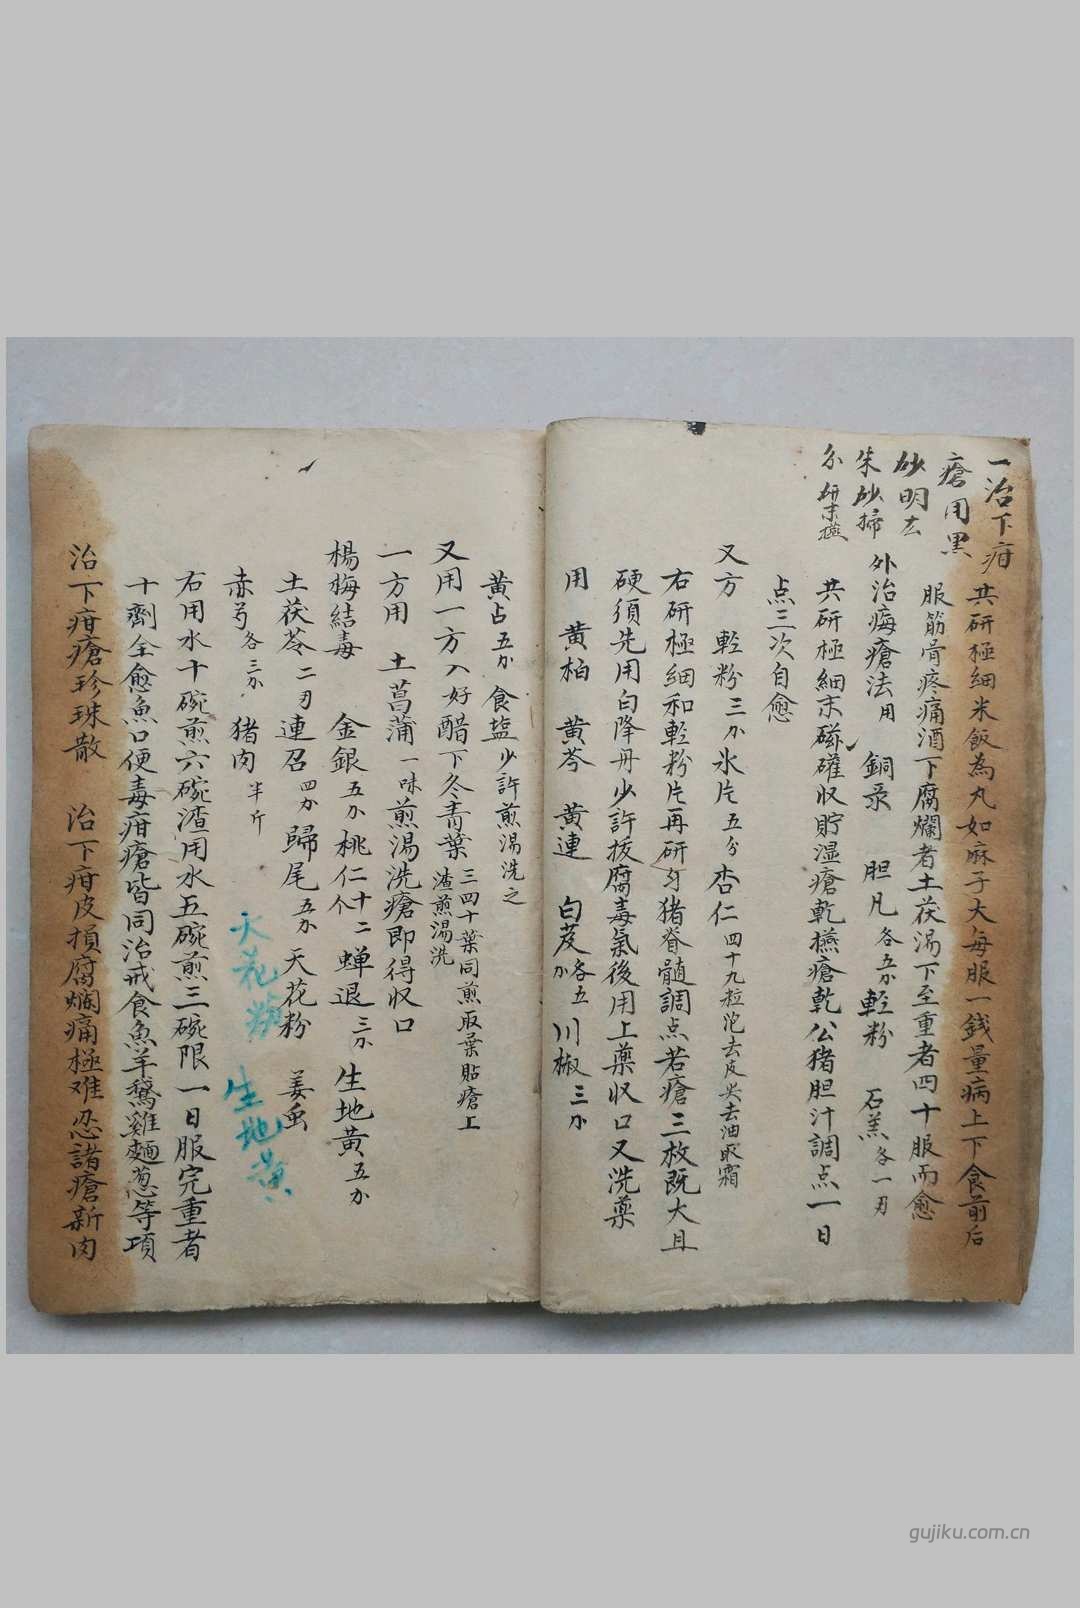 一治下疳
瘡用黑
砂明玄
朱砂掃
分研末摻
共研極細米飯為丸如麻子大每服一錢量病上下食前后
服筋骨疼痛酒下腐爛者土茯湯下至重者四十服而愈
外治痗瘡法用 銅录 胆凡各五分 輊粉 石羔各一刃
共研極細末磁確収貯湿瘡乾摻瘡乾公猪胆汁調点一日
点三次自愈
又方 輊粉三分 氷片五分 杏仁四十九粒泡去皮尖去油取霜
右研極細和輊粉片再研匀猪脊髓調点若瘡三枚既大且
硬須先用白降丹少許拔腐毒氣後用上藥収口又洗藥
用 黄柏 黄芩 黄連 白芨各五分 川椒三分
黄占五分 食塩少許煎湯洗之
又用一方入好醋下冬青葉三四十葉同煎取葉貼瘡上
渣煎湯洗
一方用 土菖蒲一味煎湯洗瘡即得収口
楊梅結毒 金銀五分 桃仁十二个 蝉退三分 生地黄五分
土茯苓二刃 連召四分 歸尾五分 天花粉 姜虫
赤弓各三分 猪肉半斤
天花粉 生地黄
右用水十碗煎六碗渣用水五碗煎三碗限一日服完重者
十劑全愈魚口便毒疳瘡皆同治戒食魚羊鵝雞麵葱等項
治下疳瘡珍珠散 治下疳皮損腐爛痛極难忍諸瘡新肉
gujiku.com.cn